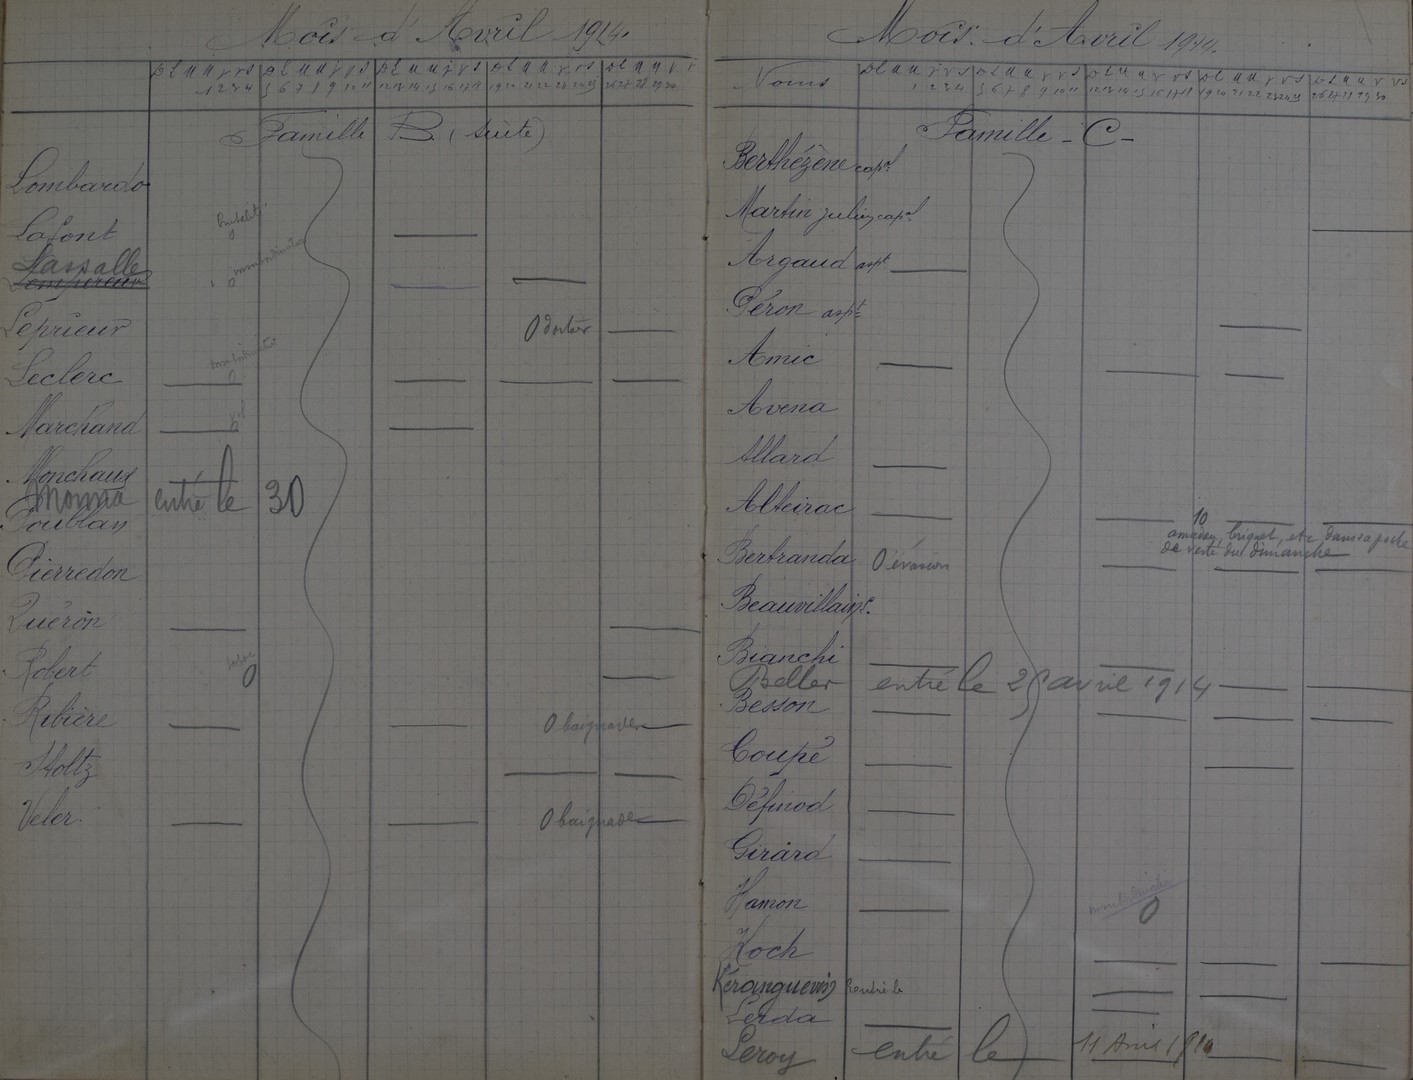 Mois d'Avril 1914.
D L M M J V S D L M M J V S D L M M J V S D L M M J V S D L M M J V
1 2 3 4 5 6 7 8 9 10 11 12 13 14 15 16 17 18 19 20 21 22 23 24 25 26 27 28 29 30
Famille B. (suite)
Lombardo
Lafont
Lassalle
Lempereur
Leprieur 0 dortoir
Leclerc
Marchand
Monchaux
Monna entré le 30
Poublan
Pierredon
Quéron
Robert 0
Ribière 0 baignade
Stoltz
Veler 0 baignade
Mois d'Avril 1914.
Noms D L M M J V S D L M M J V S D L M M J V S D L M M J V S D L M M J V S
1 2 3 4 5 6 7 8 9 10 11 12 13 14 15 16 17 18 19 20 21 22 23 24 25 26 27 28 29 30
Famille - C -
Berthézène capal
Martin julien capal
Argaud aspt
Péron aspt
Amic
Avena
Allard
Alteirac 10
amadou, briquet, etc dans sa poche
de veste du dimanche
Bertranda 0 évasion
Beauvillain
Bianchi
Beller entré le 25 avril 1914
Besson
Coupé
Définod
Girard
Hamon 0
Koch
Kéranguevin Rentré le
Lerda
Leroy entré le 11 Avril 1914